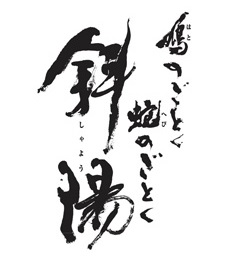 鳩のごとく
はと
蛇のごとく
へび
斜陽
しゃよう